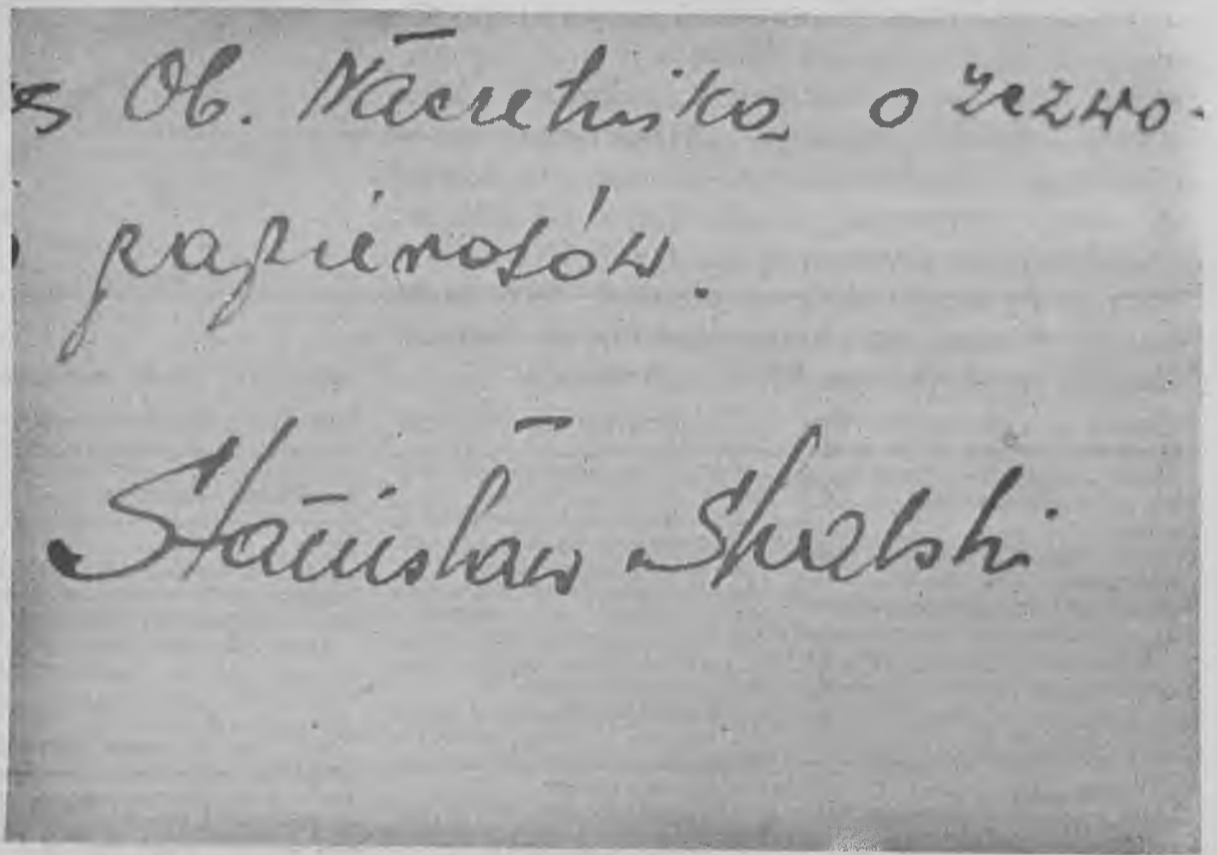 Ob. Naczelnika o zezwo-
papierosów.
Stanisław Skalski